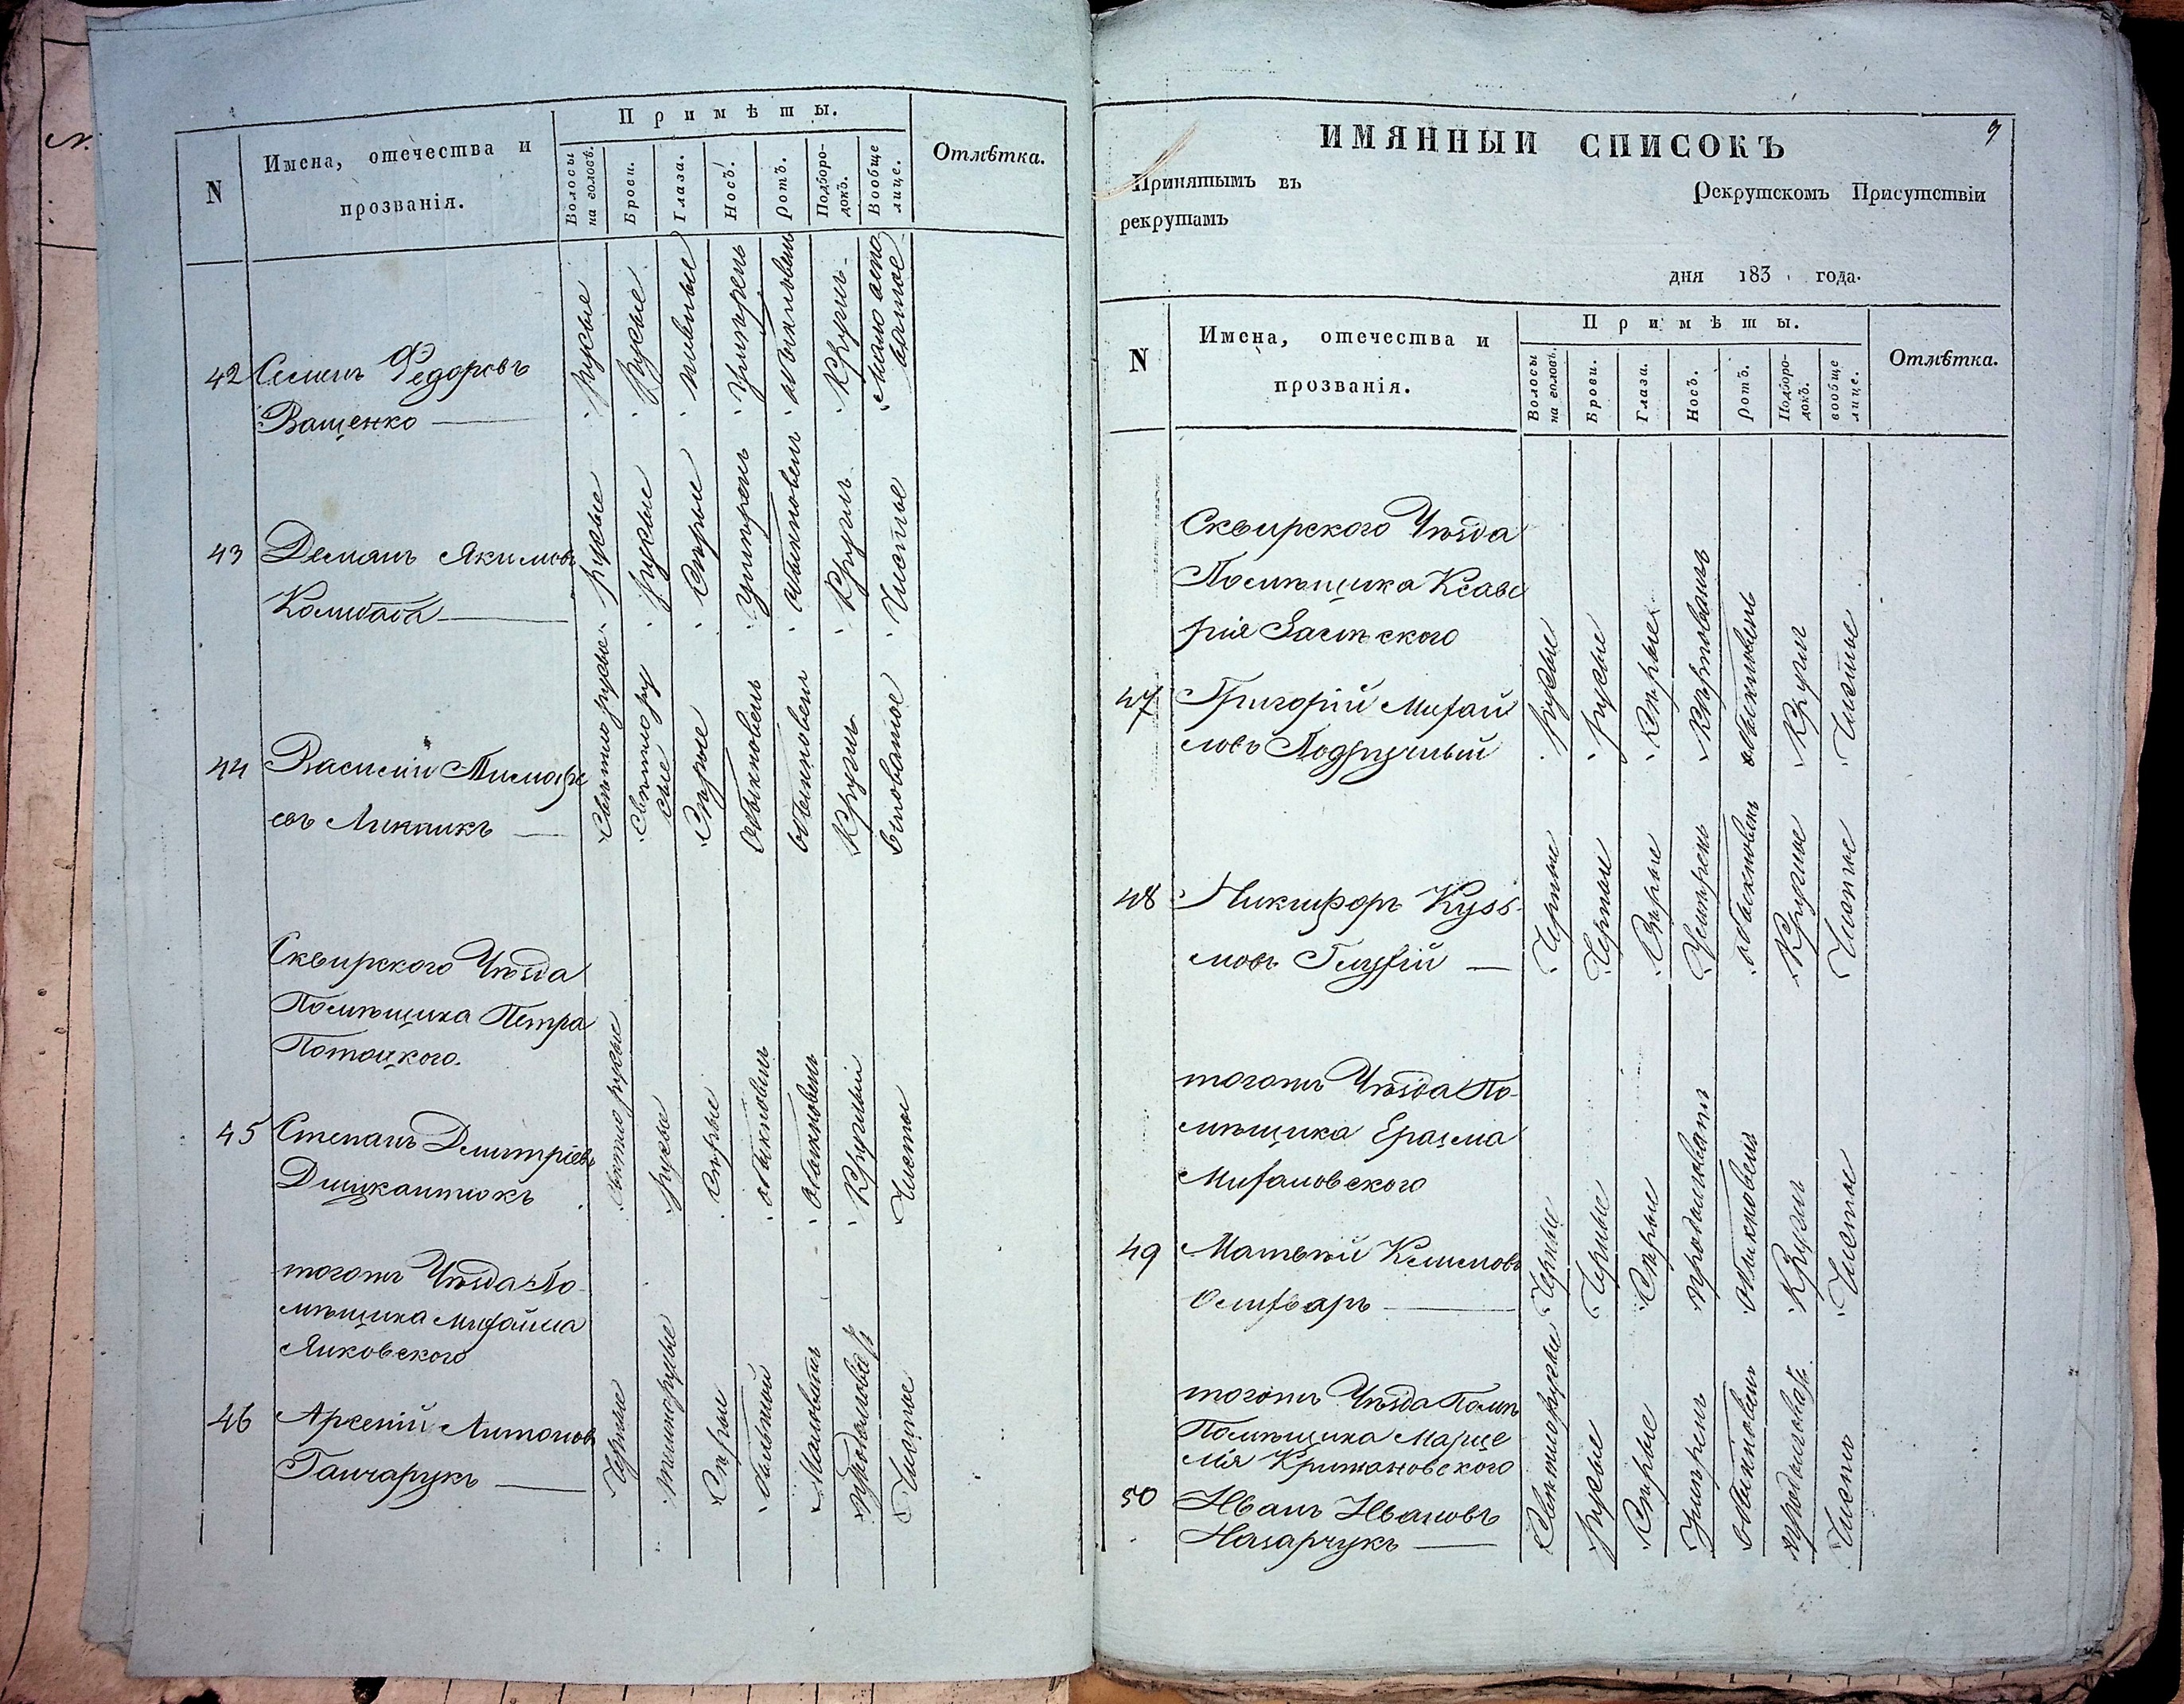 N
Имена, отечества и
прозванія.
Примѣты.
Волосы
на головѣ.
Брови.
Глаза.
Носъ.
Ротъ.
Подборо-
докъ.
Вообще
лице.
Отмѣтка.
42 Семенъ Федоровъ
Ващенко
русые
Русые
пивные
Умѣренъ
обыкновенъ
Круглъ
мало аспо
ватое
43 Демянъ Якимовъ
русые
русые
Сѣрые
Умѣренъ
обыкновенъ
Круглъ
Чистое
44 Василій
евъ Липникъ
Свѣтлорусые
Свѣтлору
сые
Сѣрые
Обыкновенъ
обыкновенъ
Круглъ
Сквирского Уѣзда
Помѣщика Петра
Потоцкого.
45 Степанъ Дмитріевъ
Свѣтлорусые
русые
Сѣрые
обыкновенъ
обыкновенъ
Круглый
Чистое
тогожъ Уѣзда По-
мѣщика Михайла
Янковского
46 Арсеній Антоновъ
Ганчарукъ
Черные
темнорусые
Сѣрые
Чистое
9
ИМЯННЫЙ СПИСОКЪ
Принятымъ въ
Рекрутскомъ Присутствіи
рекрутамъ
дня 183 года.
N
Имена, отечества и
прозванія.
Примѣты.
Волосы
на головѣ.
Брови.
Глаза.
Носъ.
Ротъ.
Подборо-
докъ.
вообще
лице.
Отмѣтка.
Сквирского Уѣзда
Помѣщика Ксаве
рія
47 Григорій Михай
ловъ Поддубный
русые
русые
Сѣрые
обыкновенъ
Круглъ
Чистое
48 Никифоръ Кузь
мовъ Глухій
Черные
Черные
Сѣрые
Умѣренъ
обыкновенъ
Круглое
Чистое
тогожъ Уѣзда По-
мѣщика Еразма
Михаловского
49 Матвѣй Климовъ
Черные
Черные
Сѣрые
продолговатъ
обыкновенъ
Круглъ
Чистое
тогожъ Уѣзда Помѣ
Помѣщика Марце
лія Крижановского
50 Иванъ Ивановъ
Назарчукъ
Свѣтлорусые
Русые
Сѣрые
Умѣренъ
обыкновенъ
продолговатъ
Чистое